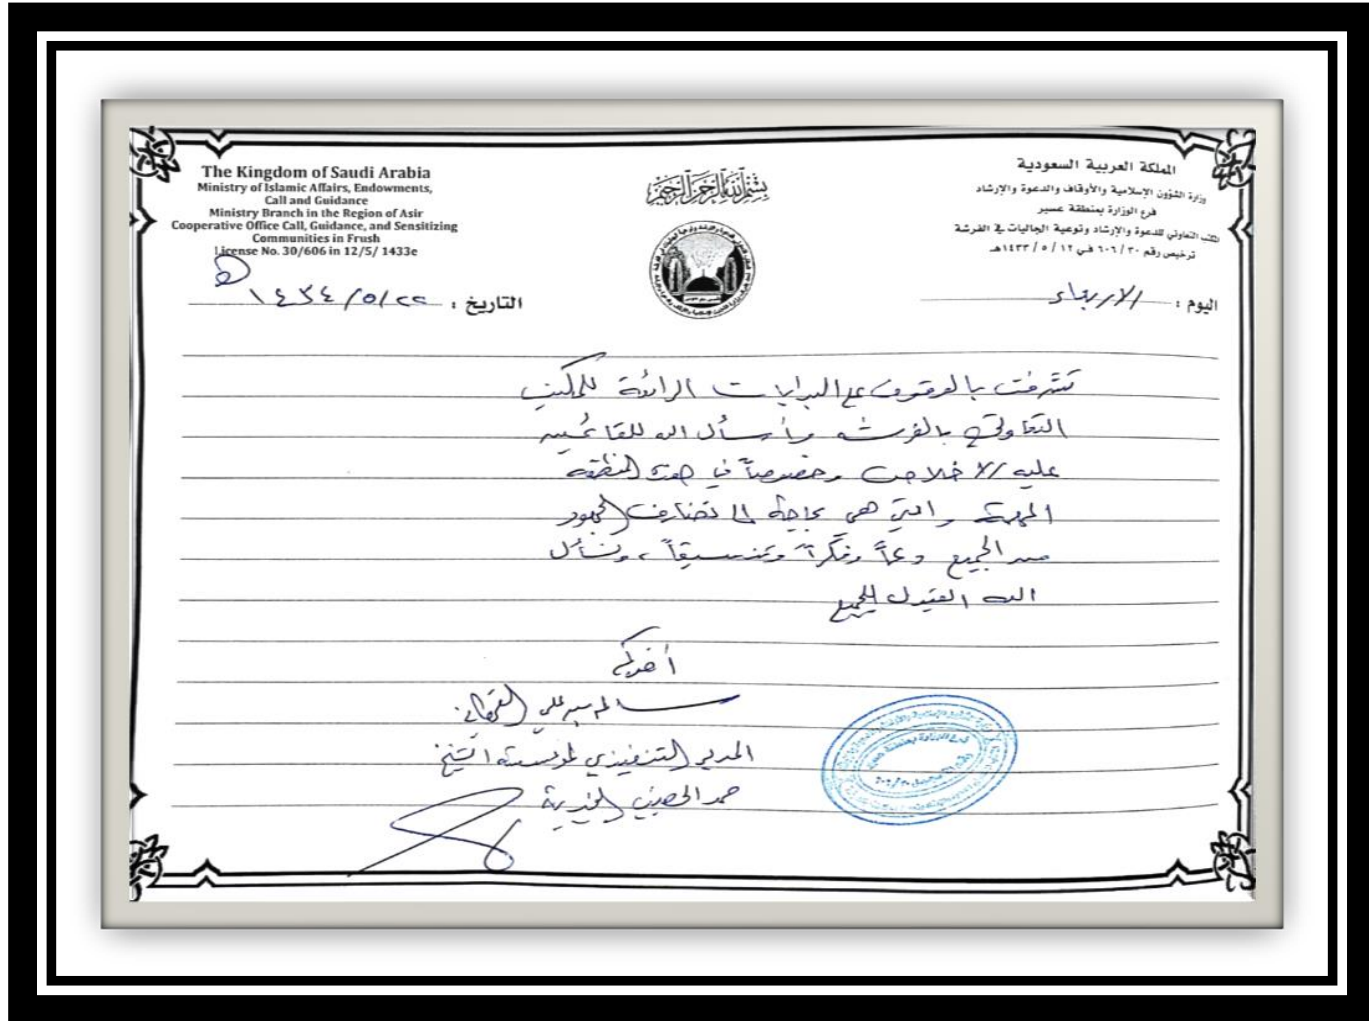 The Kingdom of Saudi Arabia
Ministry of Islamic Affairs, Endowments,
Call and Guidance
Ministry Branch in the Region of Asir
Cooperative Office Call, Guidance, and Sensitizing
Communities in Frush
License No. 30/606 in 12/5/ 1433e
بسم الله الرحمن الرحيم
المملكة العربية السعودية
وزارة الشؤون الإسلامية والأوقاف والدعوة والإرشاد
فرع الوزارة بمنطقة عسير
المكتب التعاوني للدعوة والإرشاد وتوعية الجاليات في الفرشة
ترخيص رقم ٦٠٦/٣٠ في ١٤٣٣/٥/١٢هـ
اليوم : الاربعاء
التاريخ : ١٤٣٤/٥/٢٢ هـ
تشرفت بالوقوف على البدايات الرائعة للمكتب
التعاوني بالفرشه وأسأل الله للقائمين
عليه الاخلاص وخصوصاً في هذه المنطقه
المهمة والتي هي بحاجة لتضافر الجهود
من الجميع دعماً وفكراً وتنسيقاً ، ونسأل
الله القبول للجميع
أخوكم
سالم بن علي القحطاني
المدير التنفيذي لمؤسسة الشيخ
حمد الحصيني الخيرية